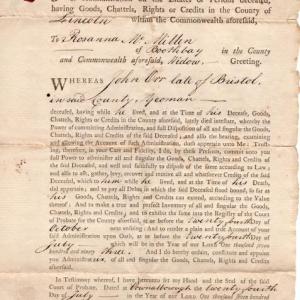 having Goods, Chattels, Rights or Credits in the County of
Lincoln within the Commonwealth aforesaid,
To Rosanna Mc Millen
of Boothbay in the County
and Commonwealth aforesaid, Widow. Greeting.
WHEREAS John Orr late of Bristol,
in said County, Yeoman
deceased, having while he lived, and at the Time of his Decease, Goods,
Chattels, Rights or Credits in the County aforesaid, lately died intestate, whereby the
Power of committing Administration, and full Disposition of all and singular the Goods,
Chattels, Rights and Credits of the said Deceased, and also the hearing, examining
and allowing the Account of such Administration, doth appertain unto Me; Trust-
ing, therefore, in your Care and Fidelity, I do, by these Presents, commit unto you
full Power to administer all and singular the Goods, Chattels, Rights and Credits of
the said Deceased, and well and faithfully to dispose of the same according to Law;
and also to ask, gather, levy, recover and receive all and whatsoever Credits of the said
Deceased, which to him while he lived, and at the Time of his Death,
did appertain; and to pay all Debts in which the Deceased stood bound, so far as
his Goods, Chattels, Rights and Credits can extend, according to the Value
thereof: And to make a true and perfect Inventory of all and singular the Goods,
Chattels, Rights and Credits, and to exhibit the same into the Registry of the Court
of Probate for the County aforesaid, at or before the twenty fourth Day of
October next ensuing: And to render a plain and true Account of your
said Administration upon Oath, at or before the twenty fourth Day of
July in the Year of our LORD One thousand seven
hundred and ninety three. And I do hereby ordain, constitute and appoint
you Administratrix of all and singular the Goods, Chattels, Rights and Credits
aforesaid.
In Testimony whereof, I have hereunto set my Hand and the Seal of the said
Court of Probate. Dated at the twenty fourth
Day of July in the Year of our LORD One thousand